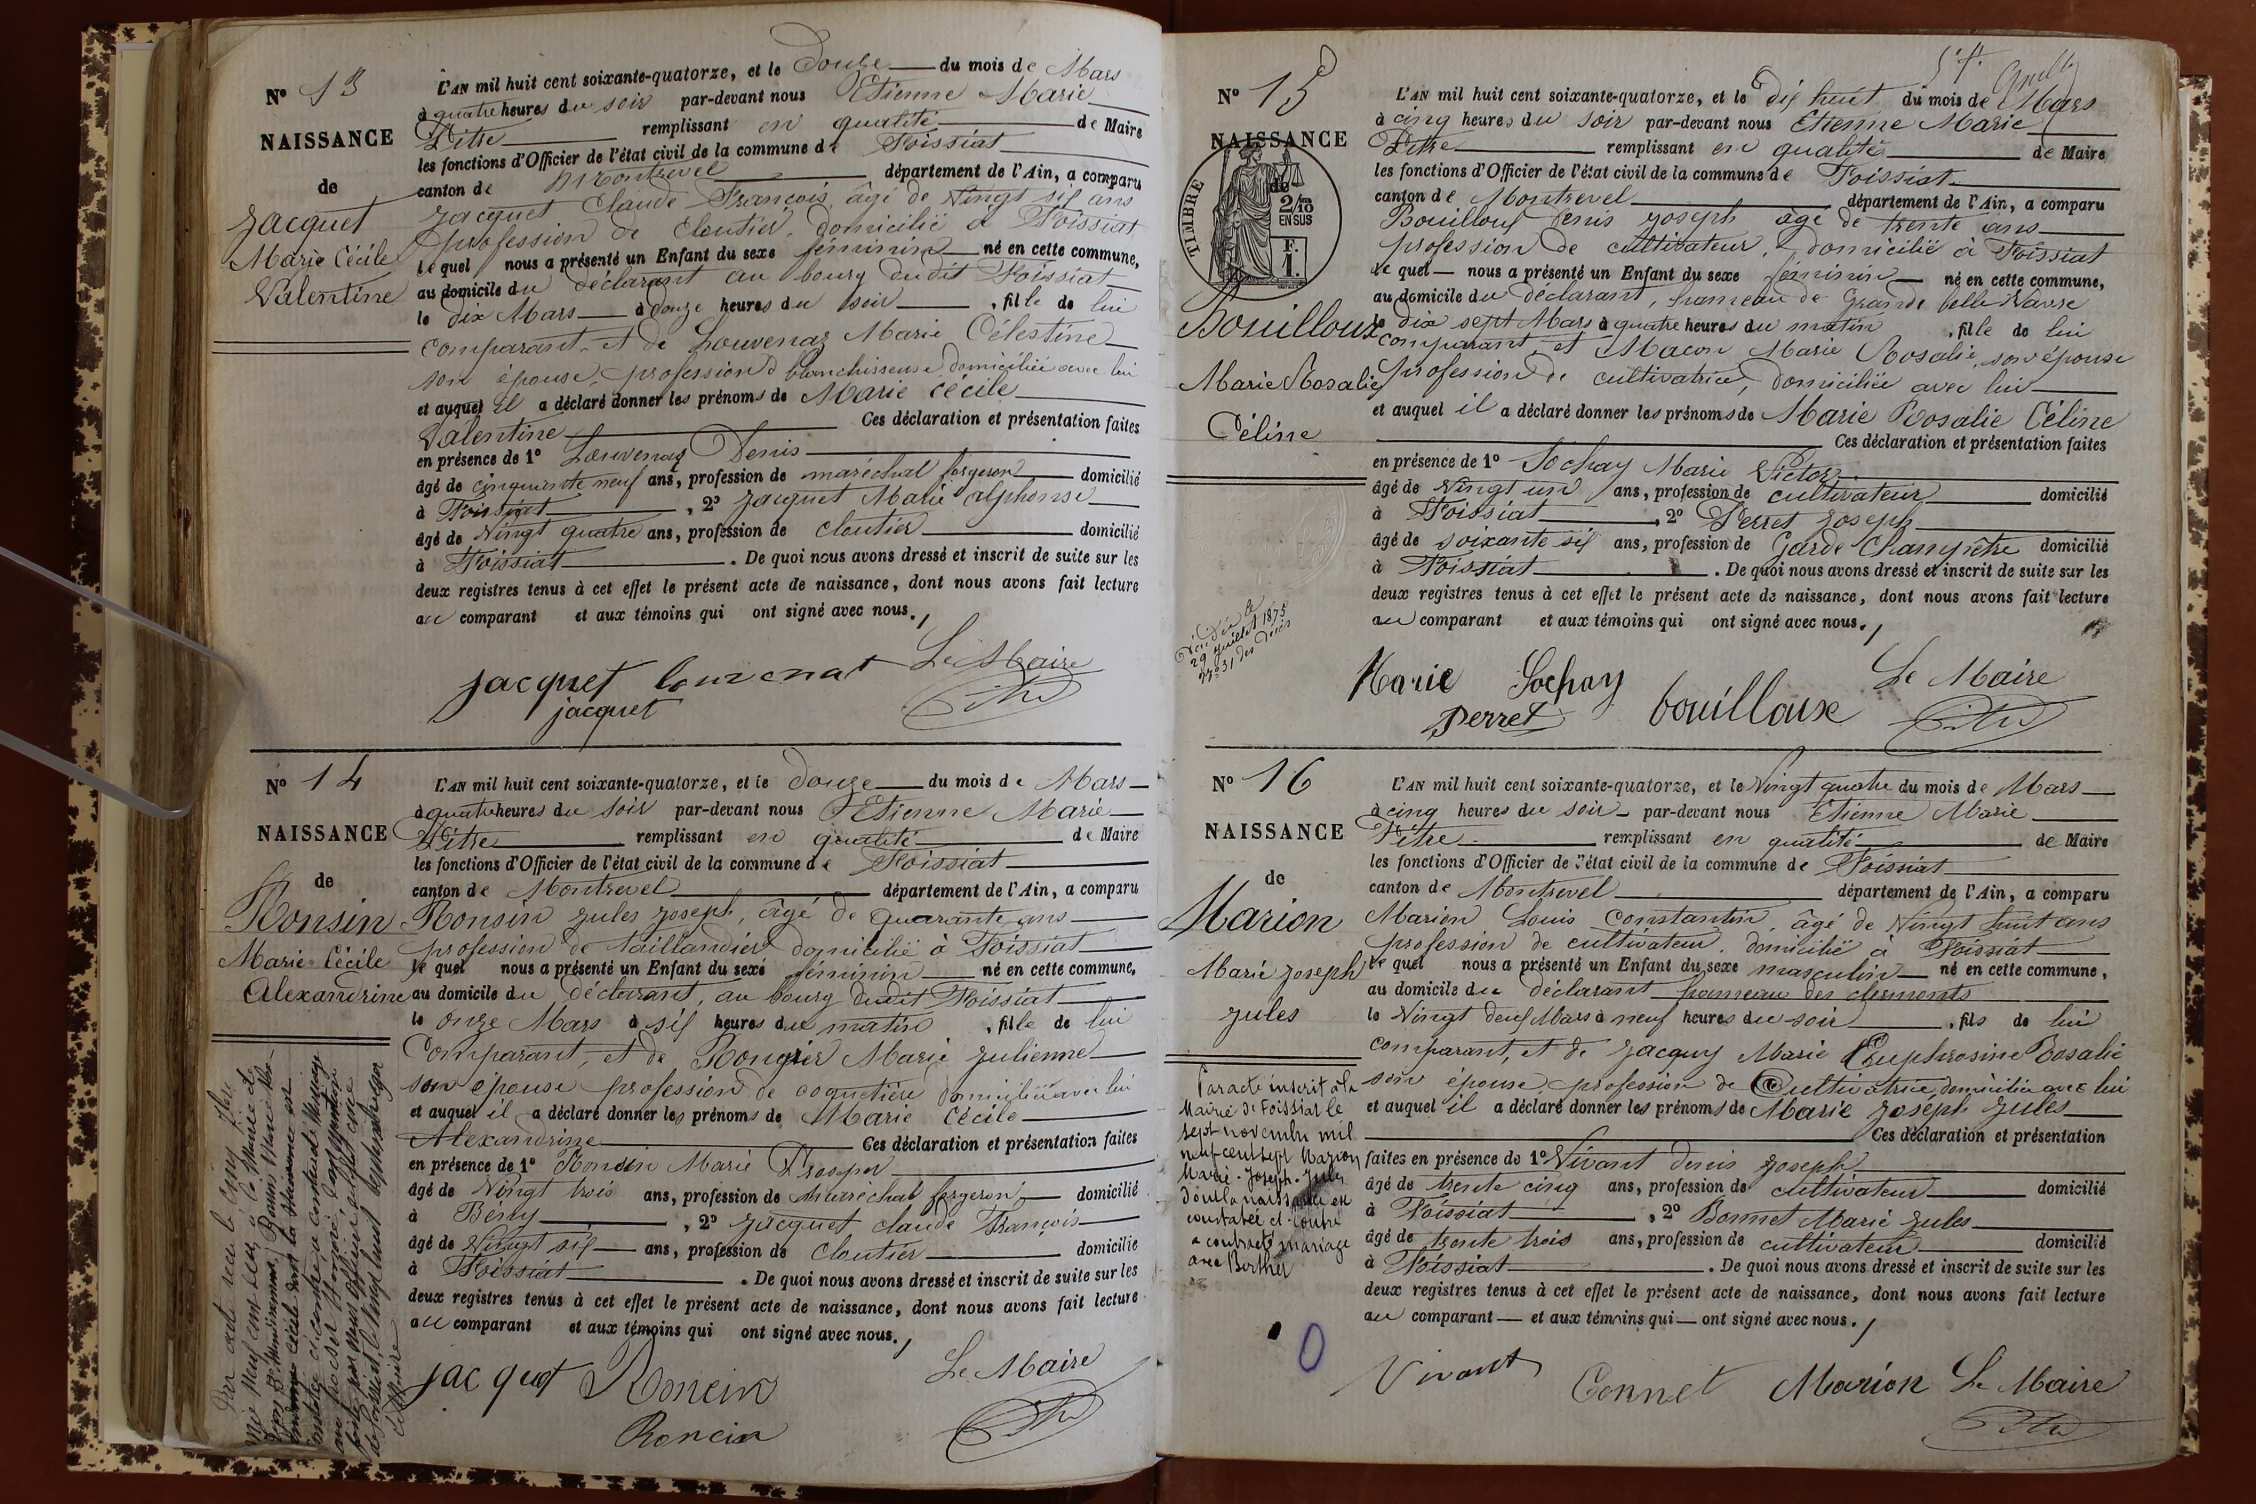 N° 13
NAISSANCE
de
Jacquet
Marie Cécile
Valentine
L'AN mil huit cent soixante-quatorze, et le Douze du mois de Mars
à quatre heures du soir par-devant nous Etienne Marie
Pitre remplissant en qualité de Maire
les fonctions d'Officier de l'état civil de la commune de Foissiat
canton de Montrevel département de l'Ain, a comparu
Jacquet Claude François, âgé de Vingt six ans
profession de Cloutier, domicilié à Foissiat
lequel nous a présenté un Enfant du sexe féminin né en cette commune,
au domicile du déclarant au bourg dudit Foissiat
le dix Mars à douze heures du soir, fille de lui
comparant, et de Louvenaz Marie Célestine
son épouse, profession d blanchisseuse domiciliée avec lui
et auquel il a déclaré donner les prénoms de Marie Cécile
Valentine Ces déclaration et présentation faites
en présence de 1° Louvenaz Denis
âgé de cinquante neuf ans, profession de maréchal forgeron domicilié
à Foissiat, 2° Jacquet Marie alphonse
âgé de Vingt quatre ans, profession de cloutier domicilié
à Foissiat. De quoi nous avons dressé et inscrit de suite sur les
deux registres tenus à cet effet le présent acte de naissance, dont nous avons fait lecture
au comparant et aux témoins qui ont signé avec nous.
Le Maire
jacquet louvenat
jacquet
N° 14
NAISSANCE
de
Ronsin
Marie Cécile
Alexandrine
L'AN mil huit cent soixante-quatorze, et le douze du mois de Mars
à quatre heures du soir par-devant nous Etienne Marie
Pitre remplissant en qualité de Maire
les fonctions d'Officier de l'état civil de la commune de Foissiat
canton de Montrevel département de l'Ain, a comparu
Ronsin Jules Joseph, âgé de quarante ans
profession de taillandier domicilié à Foissiat
lequel nous a présenté un Enfant du sexe féminin né en cette commune,
au domicile du déclarant, au bourg dudit Foissiat
le onze Mars à six heures du matin, fille de lui
comparant, et de Rongier Marie Julienne
son épouse profession de coquetière domiciliée avec lui
et auquel il a déclaré donner les prénoms de Marie Cécile
Alexandrine Ces déclaration et présentation faites
en présence de 1° Ronsin Marie Prosper
âgé de Vingt trois ans, profession de Maréchal forgeron domicilié
à Bény, 2° Jacquet claude François
âgé de Vingt six ans, profession de Cloutier domicilié
à Foissiat. De quoi nous avons dressé et inscrit de suite sur les
deux registres tenus à cet effet le présent acte de naissance, dont nous avons fait lecture
au comparant et aux témoins qui ont signé avec nous.
Le Maire
jacquet Roncin
Roncin
N° 15
NAISSANCE
de
TIMBRE
2/10
EN SUS
F.
1.
Bouilloux
Marie Rosalie
Céline
Décédée le
29 Juillet 1875
N° 31 des décès
L'AN mil huit cent soixante-quatorze, et le dix huit du mois de Mars
à cinq heures du soir par-devant nous Etienne Marie
Pitre remplissant en qualité de Maire
les fonctions d'Officier de l'état civil de la commune de Foissiat
canton de Montrevel département de l'Ain, a comparu
Bouilloux Denis Joseph âgé de trente ans
profession de cultivateur, domicilié à Foissiat
lequel nous a présenté un Enfant du sexe féminin né en cette commune,
au domicile du déclarant, hameau de Grande belle Vavre
le dix sept Mars à quatre heures du matin, fille de lui
comparant, et Macon Marie Rosalie, son épouse
profession de cultivatrice, domiciliée avec lui
et auquel il a déclaré donner les prénoms de Marie Rosalie Céline
Ces déclaration et présentation faites
en présence de 1° Sochay Marie Victor
âgé de Vingt un ans, profession de cultivateur domicilié
à Foissiat, 2° Perret Joseph
âgé de soixante six ans, profession de Garde Champêtre domicilié
à Foissiat. De quoi nous avons dressé et inscrit de suite sur les
deux registres tenus à cet effet le présent acte de naissance, dont nous avons fait lecture
au comparant et aux témoins qui ont signé avec nous.
Marie Sochay Le Maire
perret bouilloux
N° 16
NAISSANCE
de
Marion
Marie Joseph
Jules
Par acte inscrit à la
Mairie de Foissiat le
sept novembre mil
neuf cent sept Marion
Marie-Joseph-Jules
dont la naissance est
constatée ci-contre
a contracté mariage
avec Berthet
L'AN mil huit cent soixante-quatorze, et le Vingt quatre du mois de Mars
à cinq heures du soir par-devant nous Etienne Marie
Pitre remplissant en qualité de Maire
les fonctions d'Officier de l'état civil de la commune de Foissiat
canton de Montrevel département de l'Ain, a comparu
Marion Louis Constantin, âgé de Vingt huit ans
profession de cultivateur, domicilié à Foissiat
lequel nous a présenté un Enfant du sexe masculin né en cette commune,
au domicile du déclarant hameau des clermonts
le Vingt deux Mars à neuf heures du soir, fils de lui
comparant, et de Jacquy Marie Euphrosine Rosalie
son épouse, profession de Cultivatrice, domiciliée avec lui
et auquel il a déclaré donner les prénoms de Marie Joseph Jules
Ces déclaration et présentation
faites en présence de 1° Vivant denis Joseph
âgé de trente cinq ans, profession de cultivateur domicilié
à Foissiat, 2° Bonnet Marie Jules
âgé de trente trois ans, profession de cultivateur domicilié
à Foissiat. De quoi nous avons dressé et inscrit de suite sur les
deux registres tenus à cet effet le présent acte de naissance, dont nous avons fait lecture
au comparant et aux témoins qui ont signé avec nous.
Vivant Bonnet Marion Le Maire